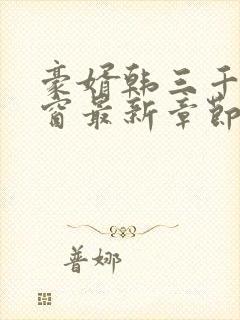 豪婿韩三千
窗最新章节
普娜